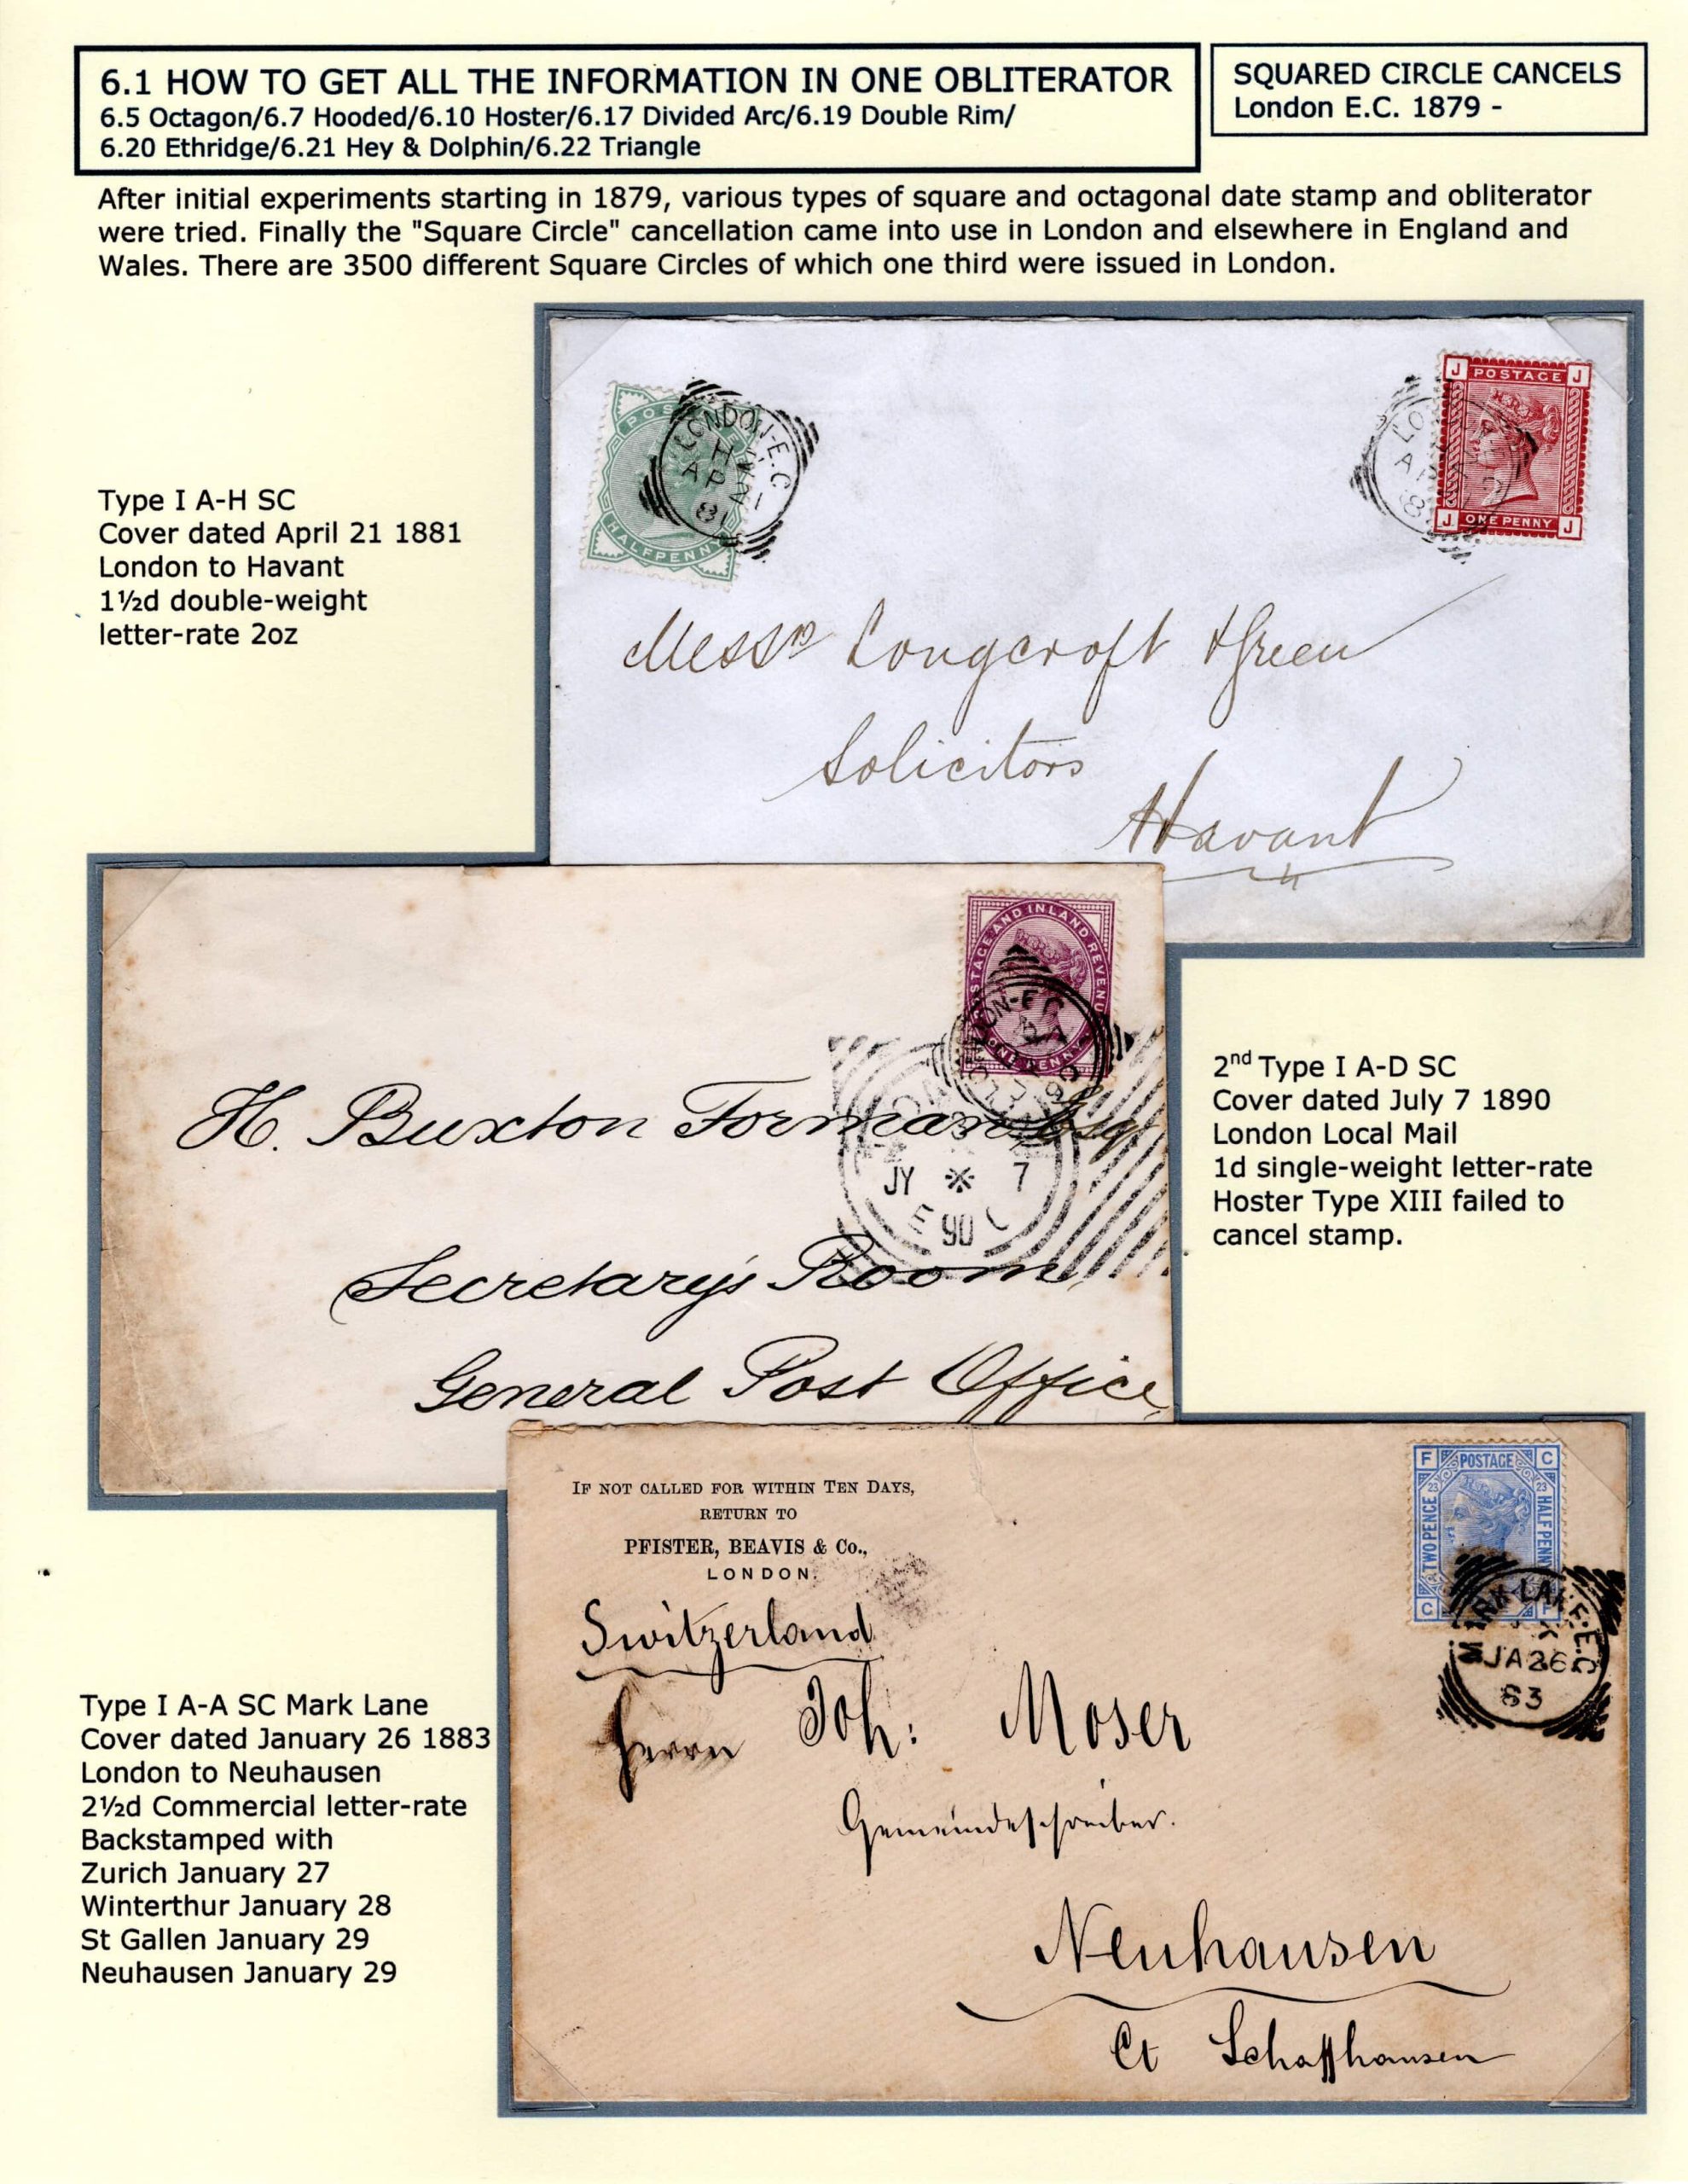 6.1 HOW TO GET ALL THE INFORMATION IN ONE OBLITERATOR
6.5 Octagon/6.7 Hooded/6.10 Hoster/6.17 Divided Arc/6.19 Double Rim/
6.20 Ethridge/6.21 Hey & Dolphin/6.22 Triangle
SQUARED CIRCLE CANCELS
London E.C. 1879 -
After initial experiments starting in 1879, various types of square and octagonal date stamp and obliterator
were tried. Finally the "Square Circle" cancellation came into use in London and elsewhere in England and
Wales. There are 3500 different Square Circles of which one third were issued in London.
Type I A-H SC
Cover dated April 21 1881
London to Havant
1½d double-weight
letter-rate 2oz
LONDON-E.C
H
AP 21
81
HALFPENNY
J POSTAGE J
J ONE PENNY J
Messrs Longcroft & Green
Solicitors
Havant
POSTAGE AND INLAND REVENUE
H. Buxton Forman Esq
JY ※ 7
90
Secretary's Room,
General Post Office,
2nd Type I A-D SC
Cover dated July 7 1890
London Local Mail
1d single-weight letter-rate
Hoster Type XIII failed to
cancel stamp.
IF NOT CALLED FOR WITHIN TEN DAYS,
RETURN TO
PFISTER, BEAVIS & Co.,
LONDON.
F POSTAGE C
23 23
TWO PENCE HALF PENNY
C F
MARK LANE.E.C
X
JA 26
83
Switzerland
Herrn Joh: Moser
Gemeindeschreiber.
Neuhausen
Ct Schaffhausen
Type I A-A SC Mark Lane
Cover dated January 26 1883
London to Neuhausen
2½d Commercial letter-rate
Backstamped with
Zurich January 27
Winterthur January 28
St Gallen January 29
Neuhausen January 29